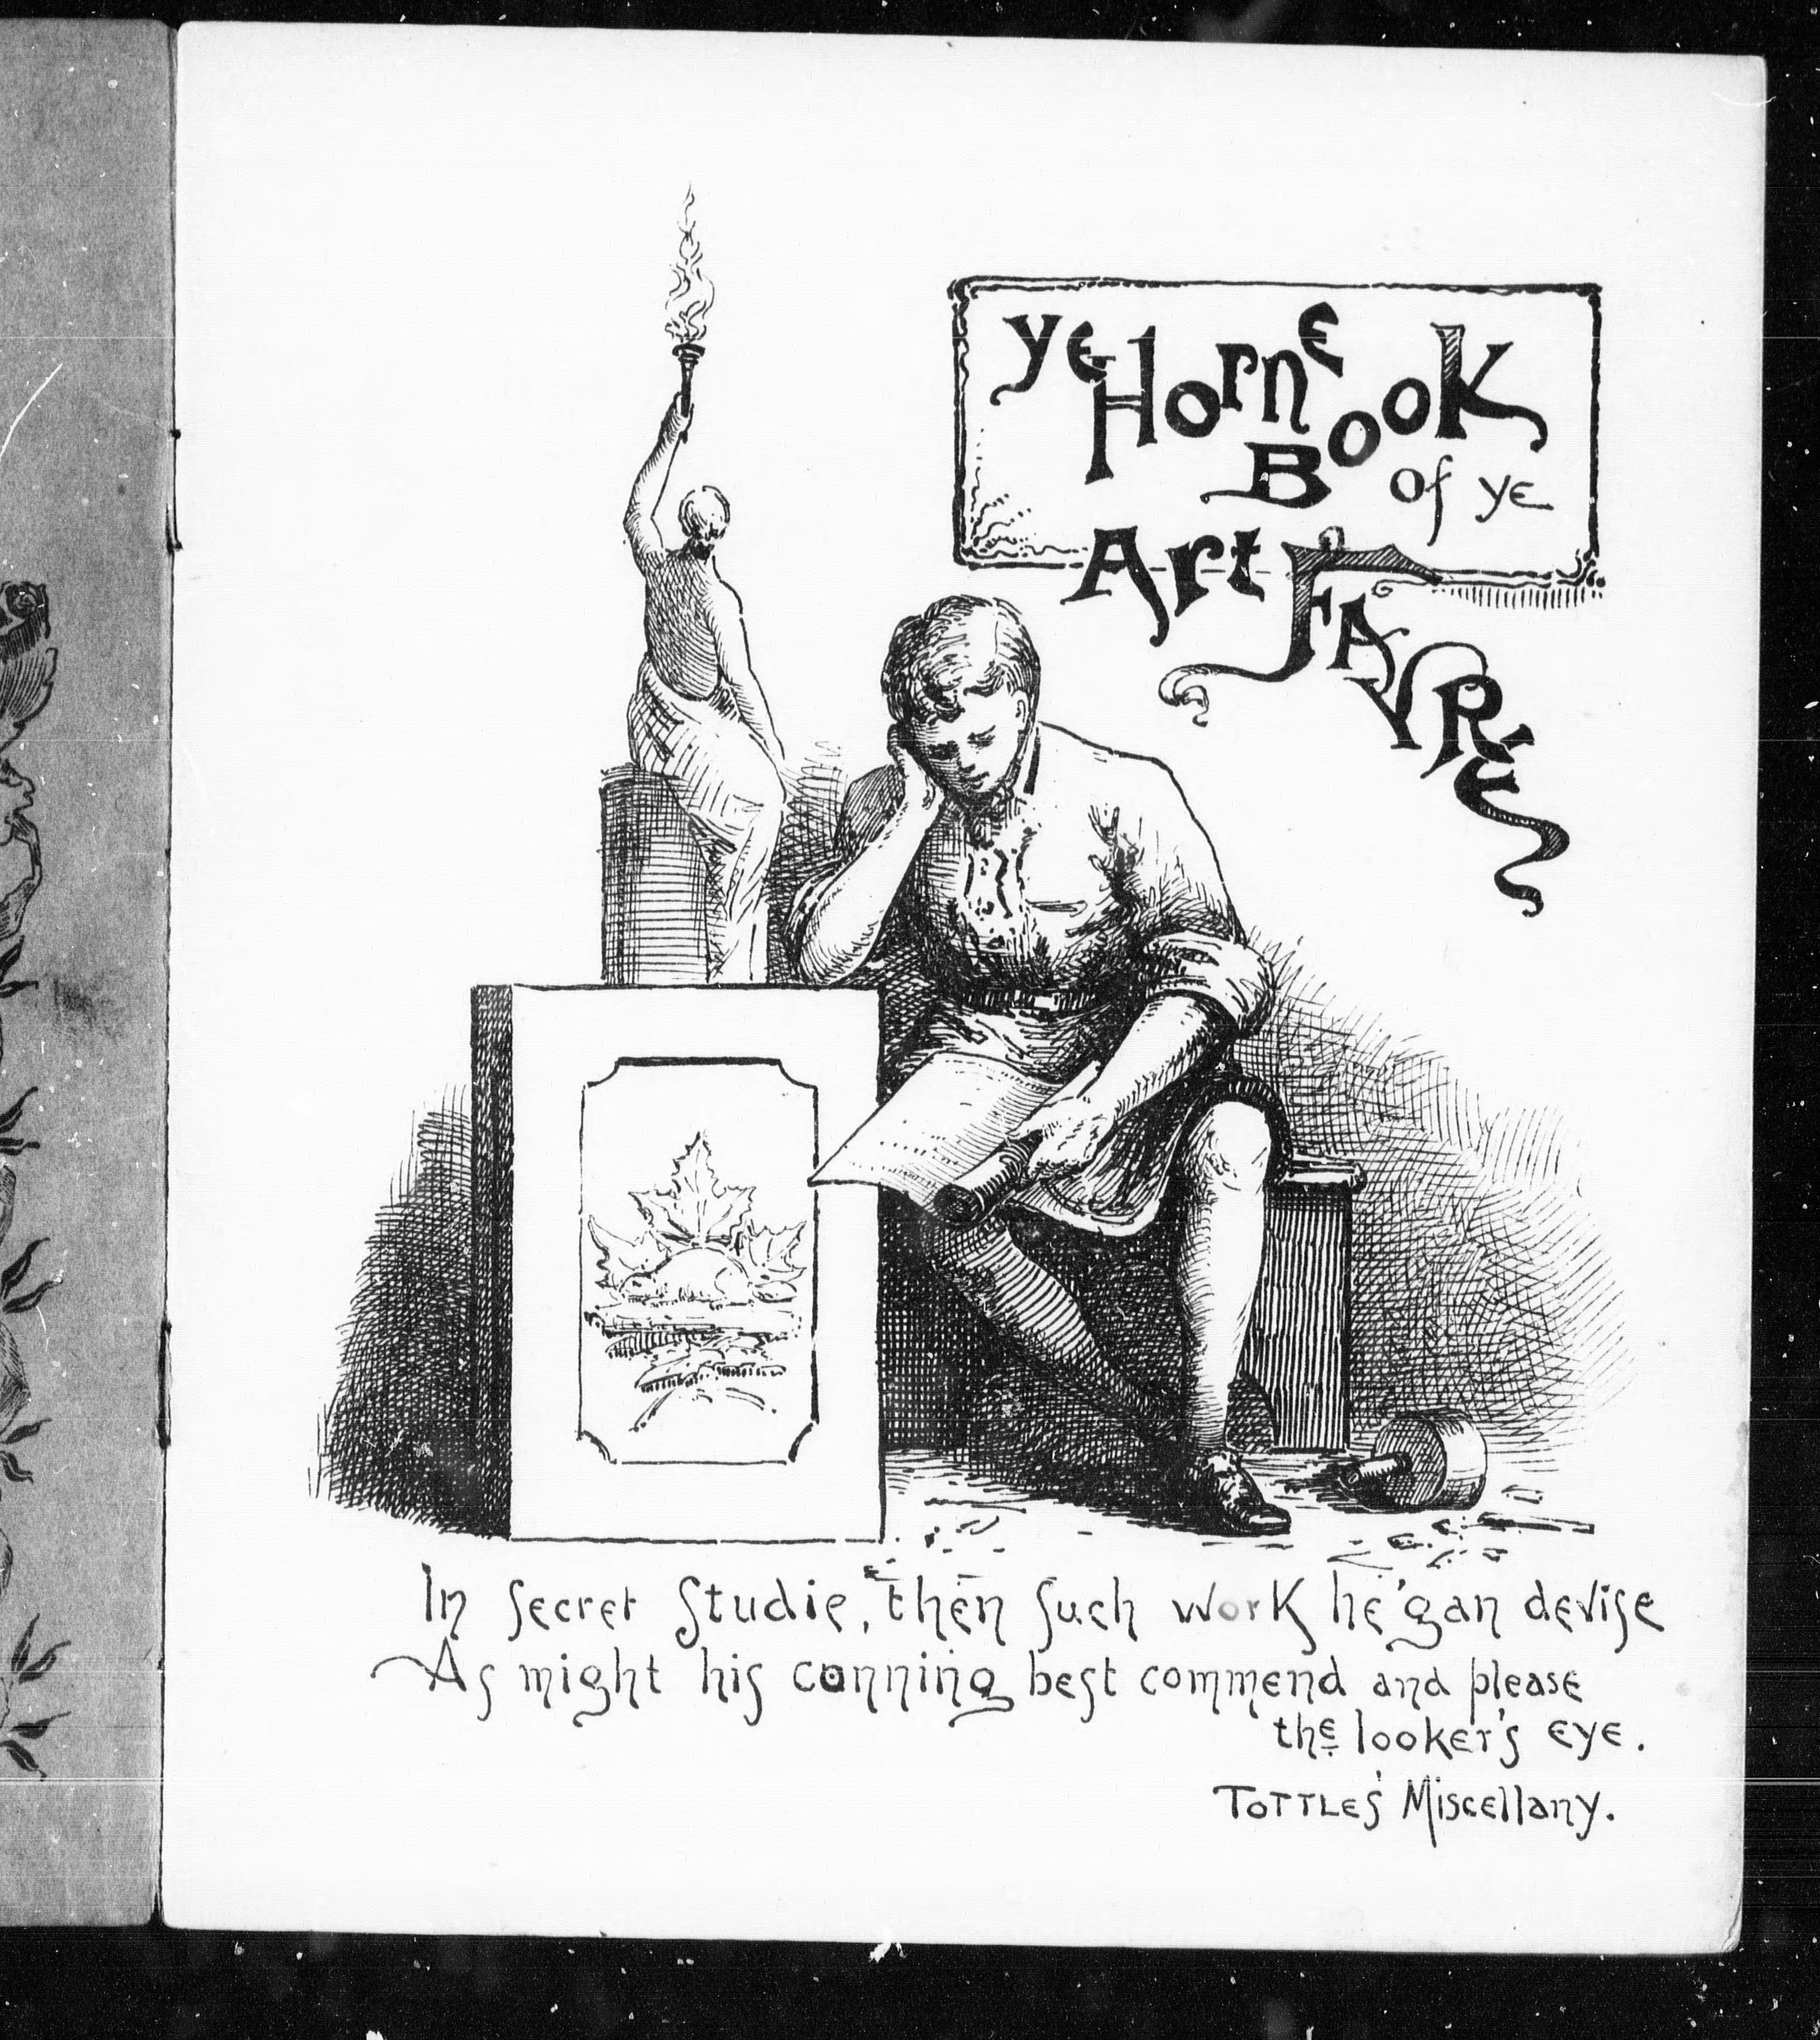 Ye Horne
Book of ye
Art Fayre
In secret studie, then such work he 'gan devise
As might his conning best commend and please
the looker's eye.
Tottle's Miscellany.